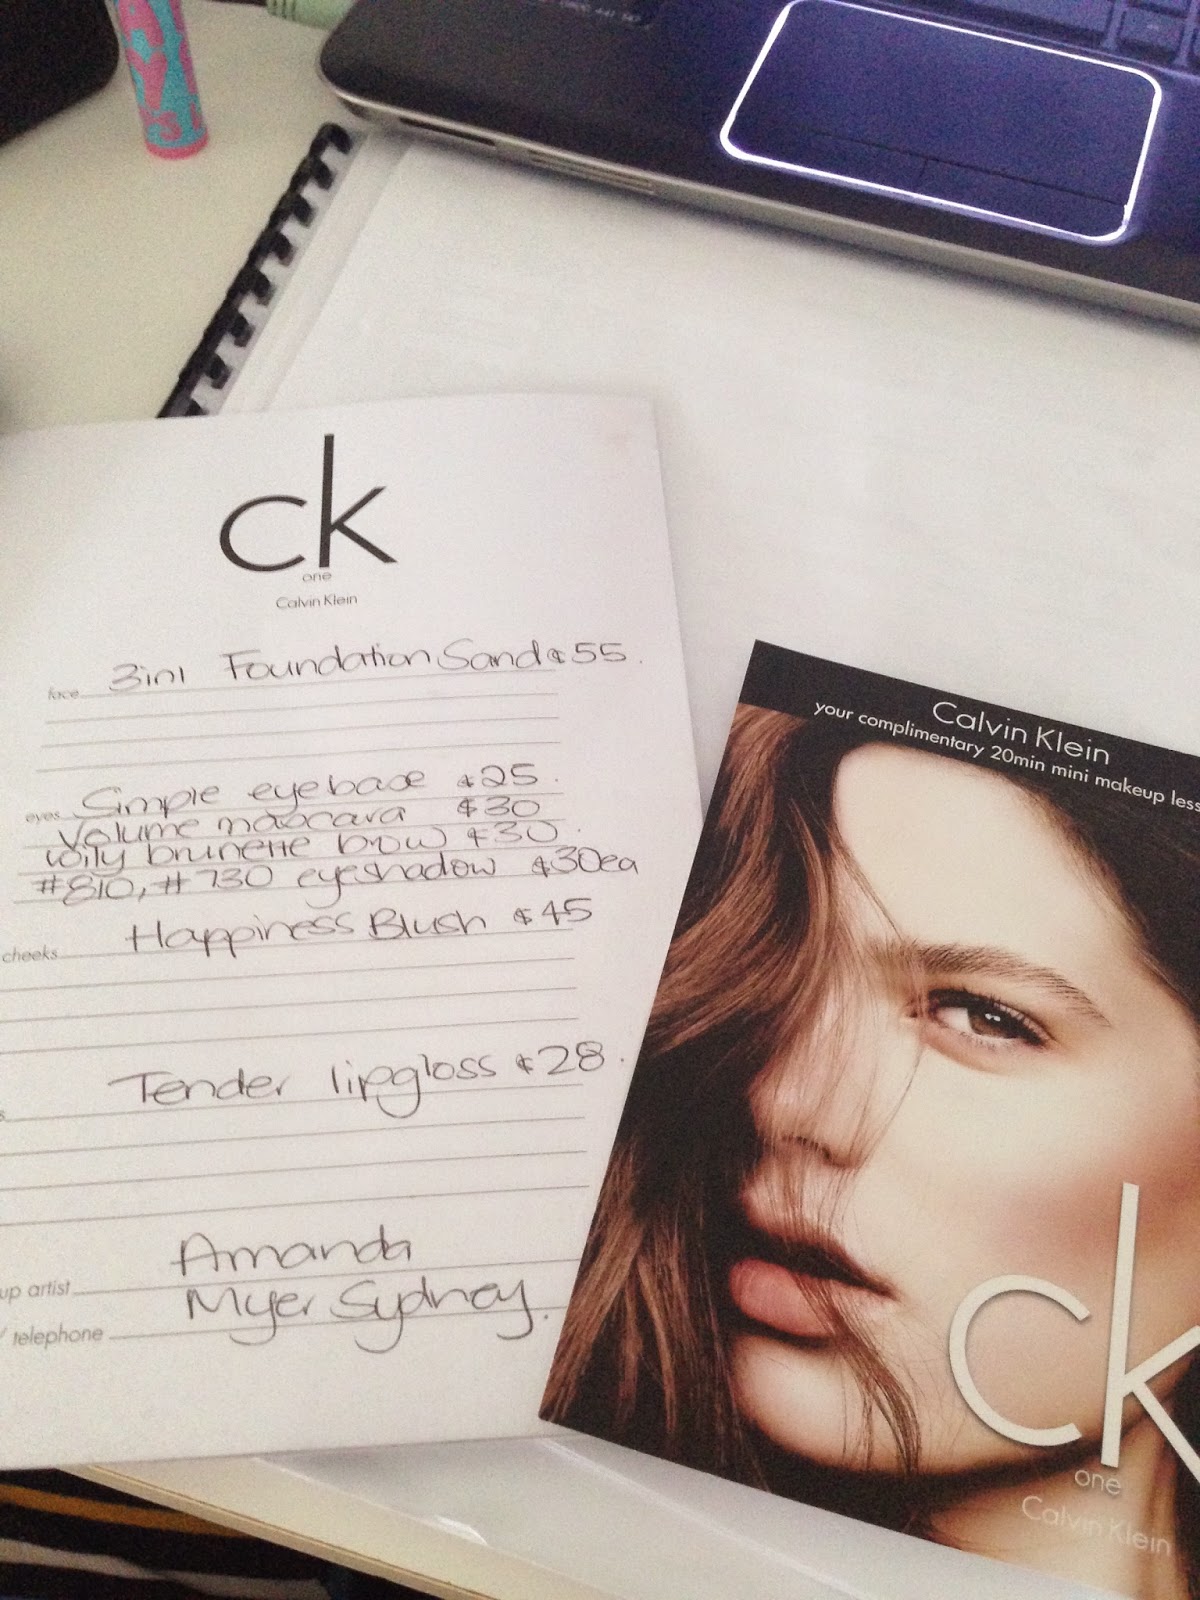 ck
one
Calvin Klein
face 3in1 Foundation Sand $55.
eyes Simple eyebase $25.
Volume mascara $30
wily brunette brow $30.
#810, #730 eyeshadow $30ea
cheeks Happiness Blush $45
Tender lipgloss $28.
up artist Amanda
/ telephone Myer Sydney.
Calvin Klein
your complimentary 20min mini makeup less
ck
one
Calvin Klein